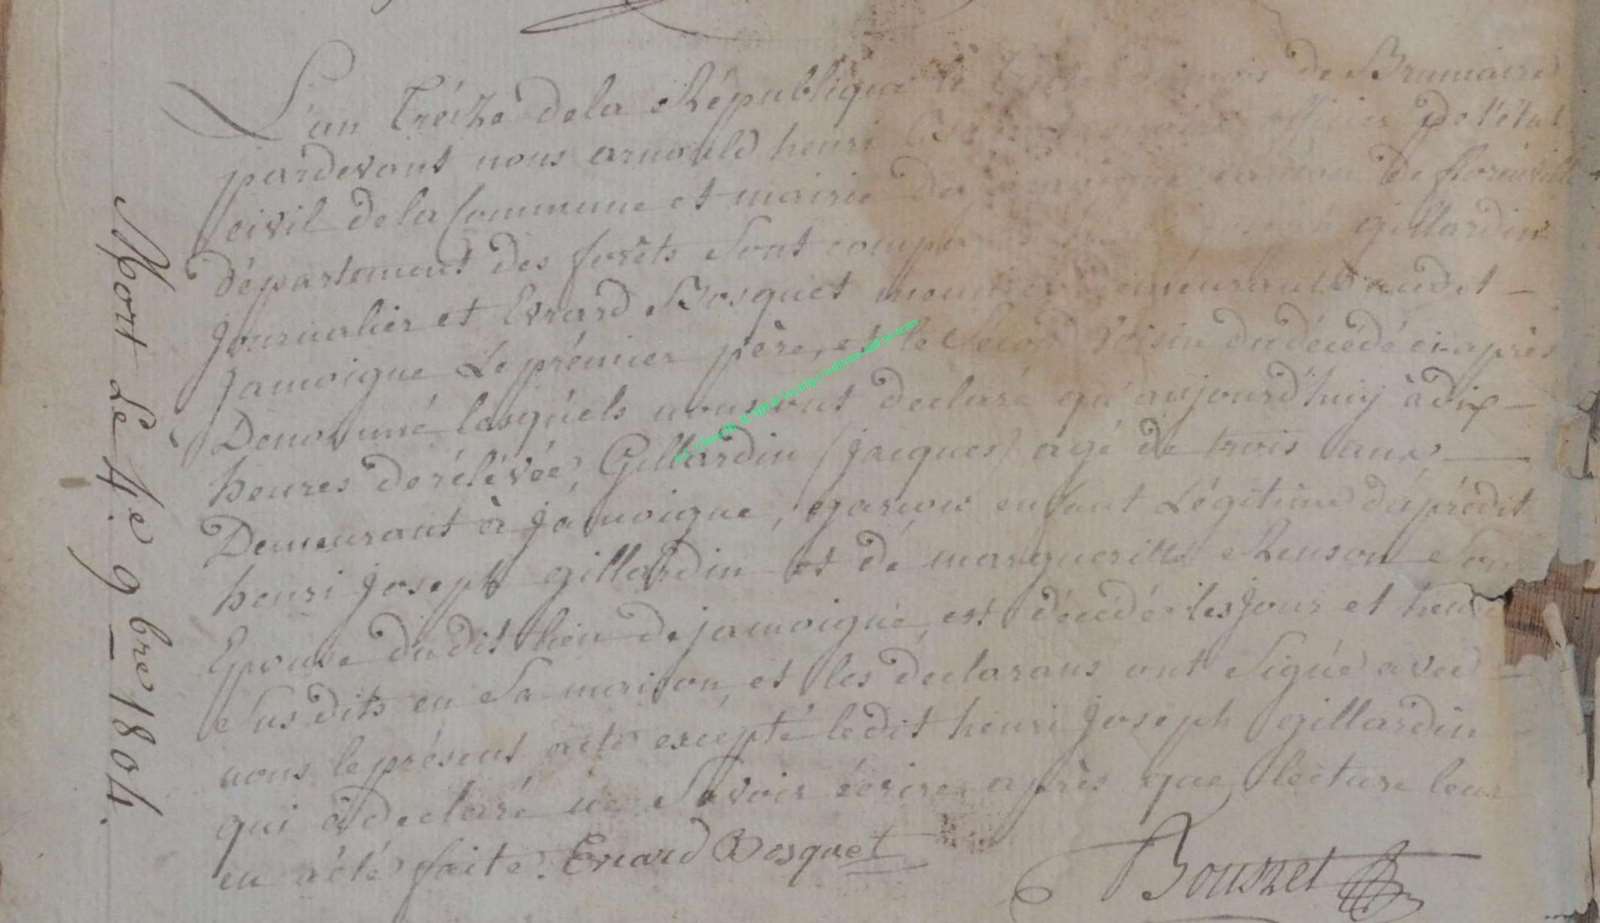 L'an treize de la République le mois de Brumaire
pardevant nous arnould henri officier de l'état
civil de la Commune et mairie de jamoigne canton de florenville
Département des forêts sont comparus henri joseph gillardin
journalier et Evrard Bosquet meunier demeurants audit
jamoigne Le prémier père, et le second voisin du décédé ci-après
Denommé lesquels nous ont declaré qu'aujourd'huy à dix
heures de rélévée, Gillardin (jacques) agé de trois ans
Demeurant à jamoigne, garçon enfant Légitime du prédit
henri joseph gillardin et de margueritte Renson son
Epouse dudit lieu de jamoigne, est décédé les jour et heure
susdits en sa maison, et les declarans ont signé avec
nous le présent acte excepté ledit henri joseph gillardin
qui à declaré ne savoir écrire après que lecture leur
en a été faite. Evrard Bosquet
Bouszet
Mort Le 4e 9bre 1804.